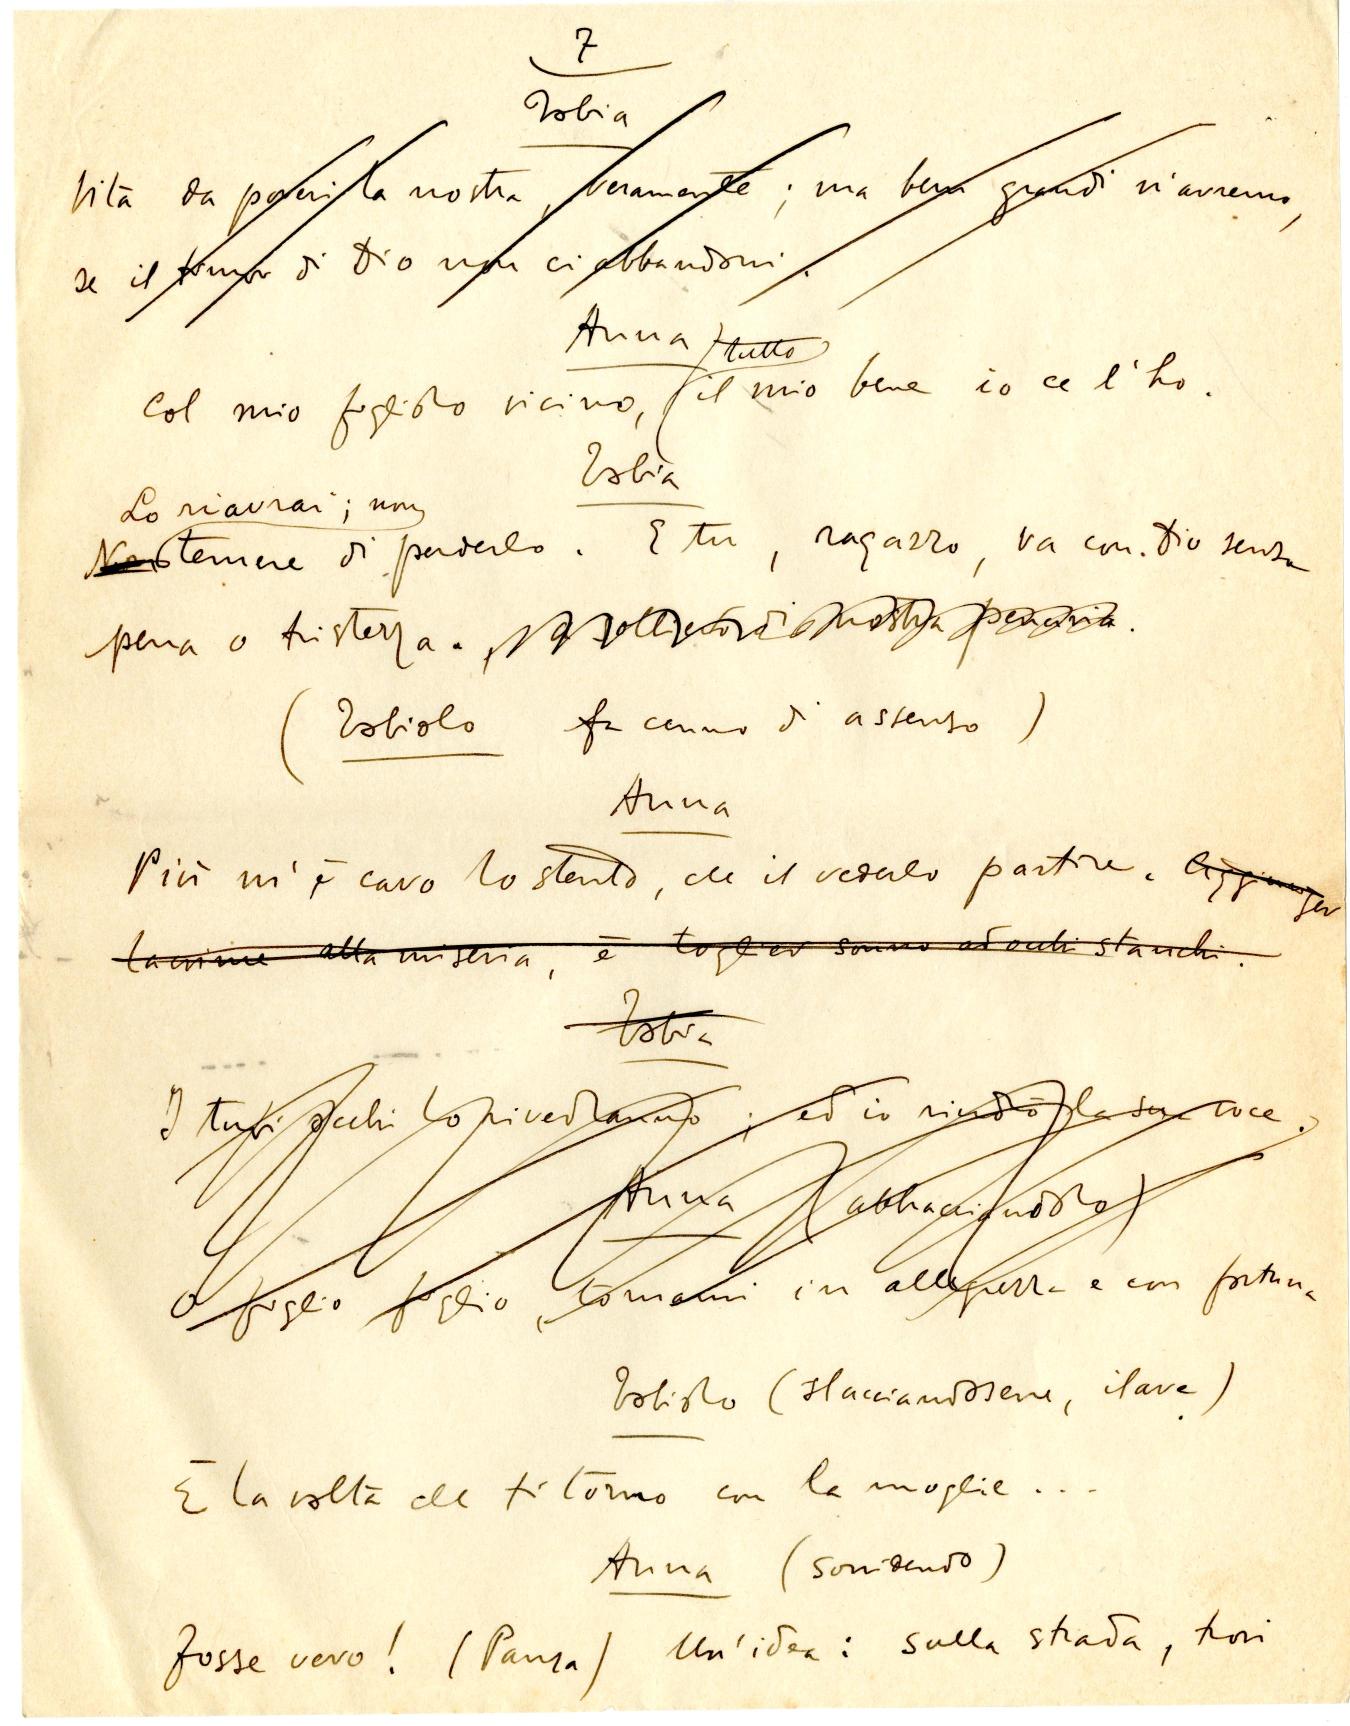 7
Tobia
Vita da poveri la nostra, veramente; ma beni grandi n'avremo,
se il timor di Dio non ci abbandoni.
Anna
tutto
Col mio figliolo vicino, il mio bene io ce l'ho.
Tobia
Lo riavrai; non
Non temere di perderlo. E tu, ragazzo, va con Dio senza
pena o tristezza. nostra penuria.
(Tobiolo fa cenno di assenso)
Anna
Più m'è caro lo stento, che il vederlo partire. Aggiunger
lacrime alla miseria, è toglier sonno ad occhi stanchi.
Tobia
I tuoi occhi lo rivedranno; ed io riudrò la sua voce.
Anna (abbracciandolo)
O figlio figlio, tornami in allegrezza e con fortuna
Tobiolo (slacciandosene, ilare)
È la volta che ti torno con la moglie...
Anna (sorridendo)
Fosse vero! (Pausa) Un'idea: sulla strada, trovi